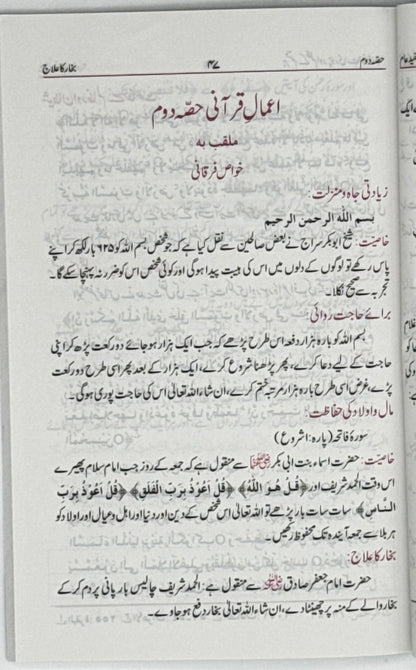 حصہ دوم ۴۷ بخار کا علاج
اعمالِ قرآنی حصّہ دوم
ملقب بہ
خواص فرقانی
زیادتی جاہ و منزلت:
بسم اللّٰہ الرحمٰن الرحیم
خاصیت: شیخ ابوبکر سراج نے بعض صالحین سے نقل کیا ہے کہ جو شخص بسم اللہ کو ۶۲۵ بار لکھ کر اپنے
پاس رکھے تو لوگوں کے دلوں میں اس کی ہیبت پیدا ہوگی اور کوئی شخص اس کو ضرر نہ پہنچا سکے گا۔
تجربہ سے صحیح نکلا۔
برائے حاجت روائی:
بسم اللہ کو بارہ ہزار دفعہ اس طرح پڑھے کہ جب ایک ہزار ہو جائے دو رکعت پڑھ کر اپنی
حاجت کے لیے دعا کرے، پھر پڑھنا شروع کرے، ایک ہزار کے بعد پھر اسی طرح دو رکعت
پڑے، غرض اسی طرح بارہ ہزار مرتبہ ختم کرے، ان شاء اللہ تعالیٰ اس کی حاجت پوری ہوگی۔
مال و اولاد کی حفاظت:
سورۂ فاتحہ (پارہ: ۱ شروع)
خاصیت: حضرت اسماء بنت ابی بکر رضی اللہ عنہا سے منقول ہے کہ جمعہ کے روز جب امام سلام پھیرے
اس وقت الحمد شریف اور ﴿قُلْ هُوَ اللّٰهُ﴾ ﴿قُلْ اَعُوْذُ بِرَبِّ الْفَلَقِ﴾ ﴿قُلْ اَعُوْذُ بِرَبِّ
النَّاسِ﴾ سات سات بار پڑھے تو اللہ تعالیٰ اس شخص کے دین اور دنیا اور اہل و عیال اور اولاد کو
ہر بلا سے جمعہ آیندہ تک محفوظ رکھیں۔
بخار کا علاج:
حضرت امام جعفر صادق سے منقول ہے: الحمد شریف چالیس بار پانی پر دم کر کے
بخار والے کے منہ پر چھینٹا دے، ان شاء اللہ تعالیٰ بخار دفع ہو جاوے۔